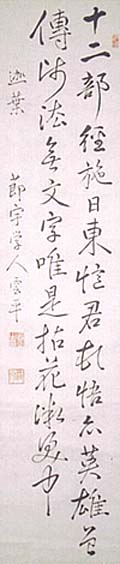 十二部經施日東君頓悟亦英雄
傳法無文字唯是拈花微笑中
迦葉
節宇学人雲平